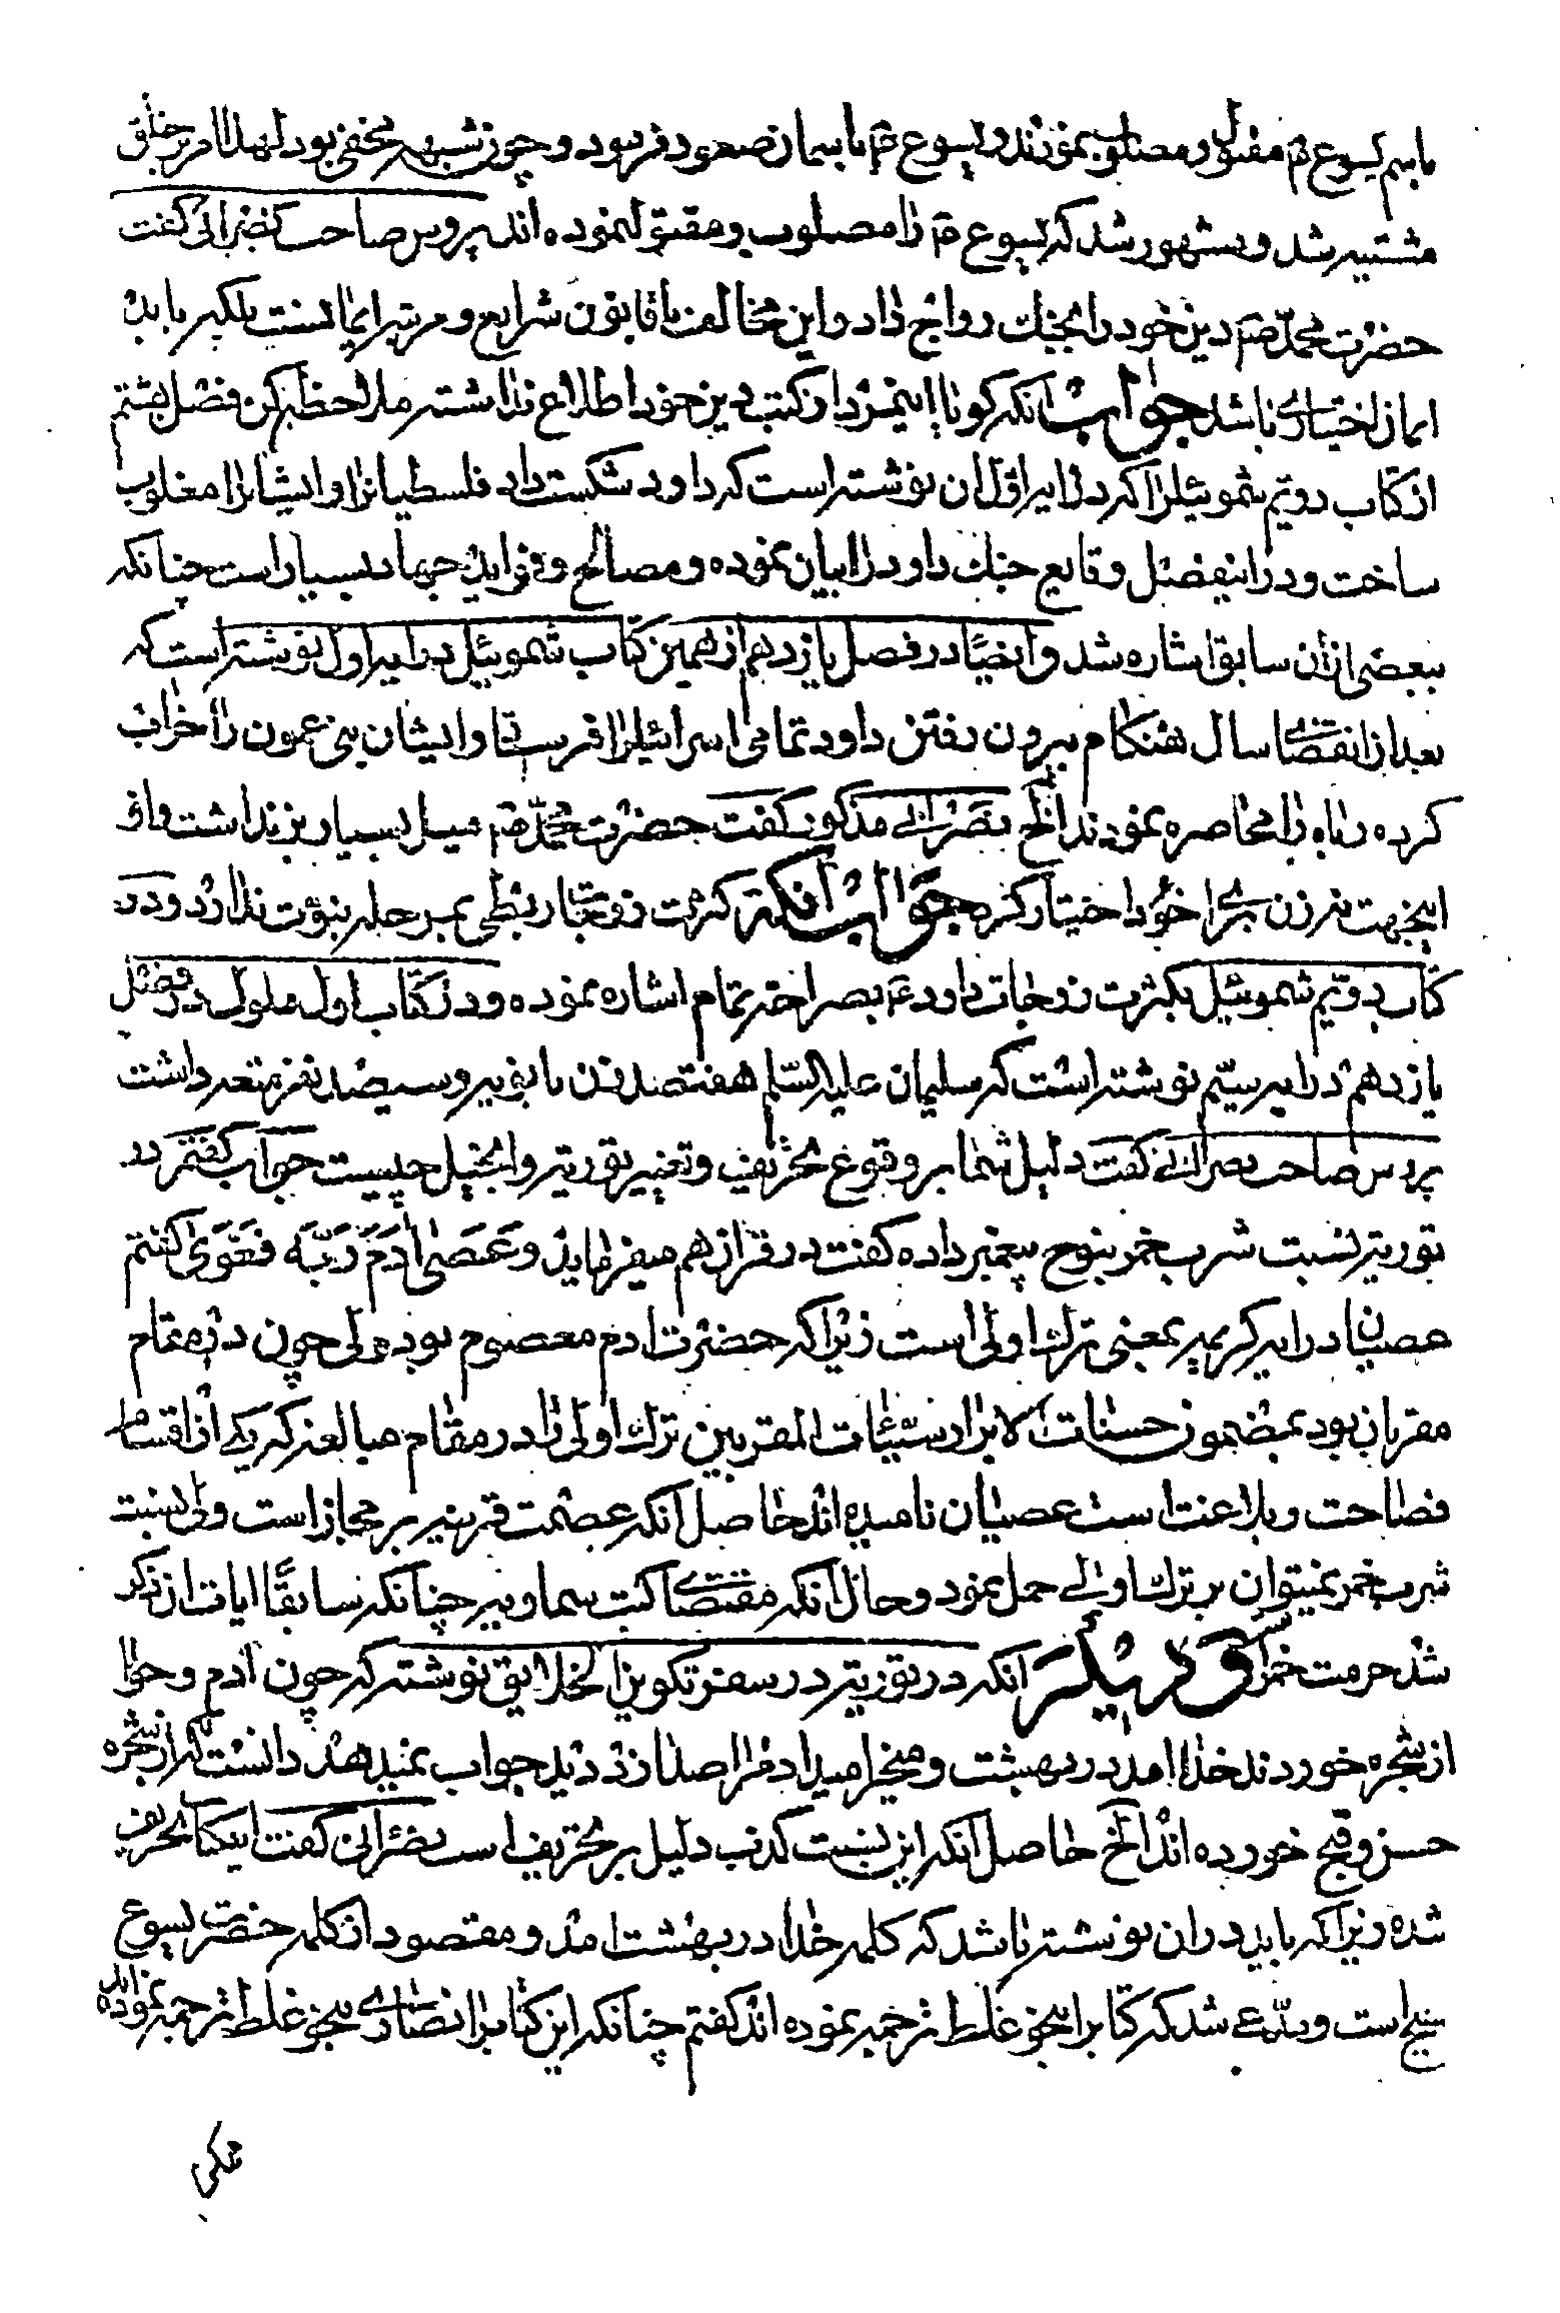 باسم یسوع ع مقتول و مصلوب نمودند و یسوع ع باسمان صعود فرمود و چون شبهه مخفی بود لهذا امر بر خلق
مشتبه شد و مشهور شد که یسوع ع را مصلوب و مقتول نموده اند پروس صاحب نصرانی گفت
حضرت محمد ص دین خود را بجنك رواج داد و این مخالف با قانون شرایع و مرتبه ایمانست بلکه باید
ایمان اختیاری باشد جواب آنکه گویا اینمرد از کتب دین خود اطلاع نداشته ملاحظه کن فصل هشتم
از کتاب دویم شموئیل را که در ایه اول ان نوشته است که داود شکست داد فلسطیانرا و ایشانرا مغلوب
ساخت و در اینفصل وقایع جنك داود را بیان نموده و مصالح و فواید جهاد بسیار است چنانکه
ببعضی از ان سابق اشاره شد و ایضًا در فصل یازدهم از همین کتاب شموئیل در ایه اول نوشته است که
بعد از انقضای سال هنکام بیرون رفتن داود تمامی اسرائیل را فرستاد و ایشان بنی عمون را خراب
کرده رباه را محاصره نمودند الخ نصرانی مذکور گفت حضرت محمد ص میل بسیار بزن داشت و از
اینجهت نه زن برای خود اختیار کرد جواب آنکه کثرت زوجات ربطی بمرحله نبوت ندارد و در
کتاب دویم شموئیل بکثرت زوجات داود ع بصراحة تمام اشاره نموده و در کتاب اول ملوك در فصل
یازدهم در ایه سیّم نوشته است که سلیمان علیه السّلم هفتصد زن بانویه و سیصد نفر متعه داشت
پروس صاحب نصرانی گفت دلیل شما بر وقوع تحریف و تغییر توریة و انجیل چیست جواب گفتم در
توریة نسبت شرب خمر بنوح پیغمبر داده گفت در قران هم میفرماید وَعَصٰی اٰدَمُ رَبَّهُ فَغَوَیٰ گفتم
عصیان در ایه کریمه بمعنی ترك اولی است زیرا که حضرت ادم معصوم بوده ولی چون در مقام
مقربان بود بمضمون حسنات الابرار سیّئات المقربین ترك اولی را در مقام مبالغه که یکی از اقسام
فصاحت و بلاغت است عصیان نامیده اند حاصل آنکه عصمت قرینه بر مجاز است ولی نسبت
شرب خمر نمیتوان بر ترك اولی حمل نمود و حال آنکه مقتضای کتب سماویه چنانکه سابقًا ایات ان ذکر
شد حرمت خمر است و دیگر انکه در توریة در سفر تکوین الخلایق نوشته که چون ادم و حوا
از شجره خوردند خدا امد در بهشت و میخرامید ادم را صدا زد دید جواب نمیدهد دانست که از شجره
حسن و قبح خورده اند الخ حاصل آنکه این نسبت کذب دلیل بر تحریف است نصرانی گفت اینکتاب تحریف
شده زیرا که باید در ان نوشته باشد که کلمه خدا در بهشت امد و مقصود از کلمه حضرت یسوع
مسیح است و مدّعی شد که کتابرا بنحو غلط ترجمه نموده اند گفتم چنانکه این کتابرا نصاری بنحو غلط ترجمه نموده اند